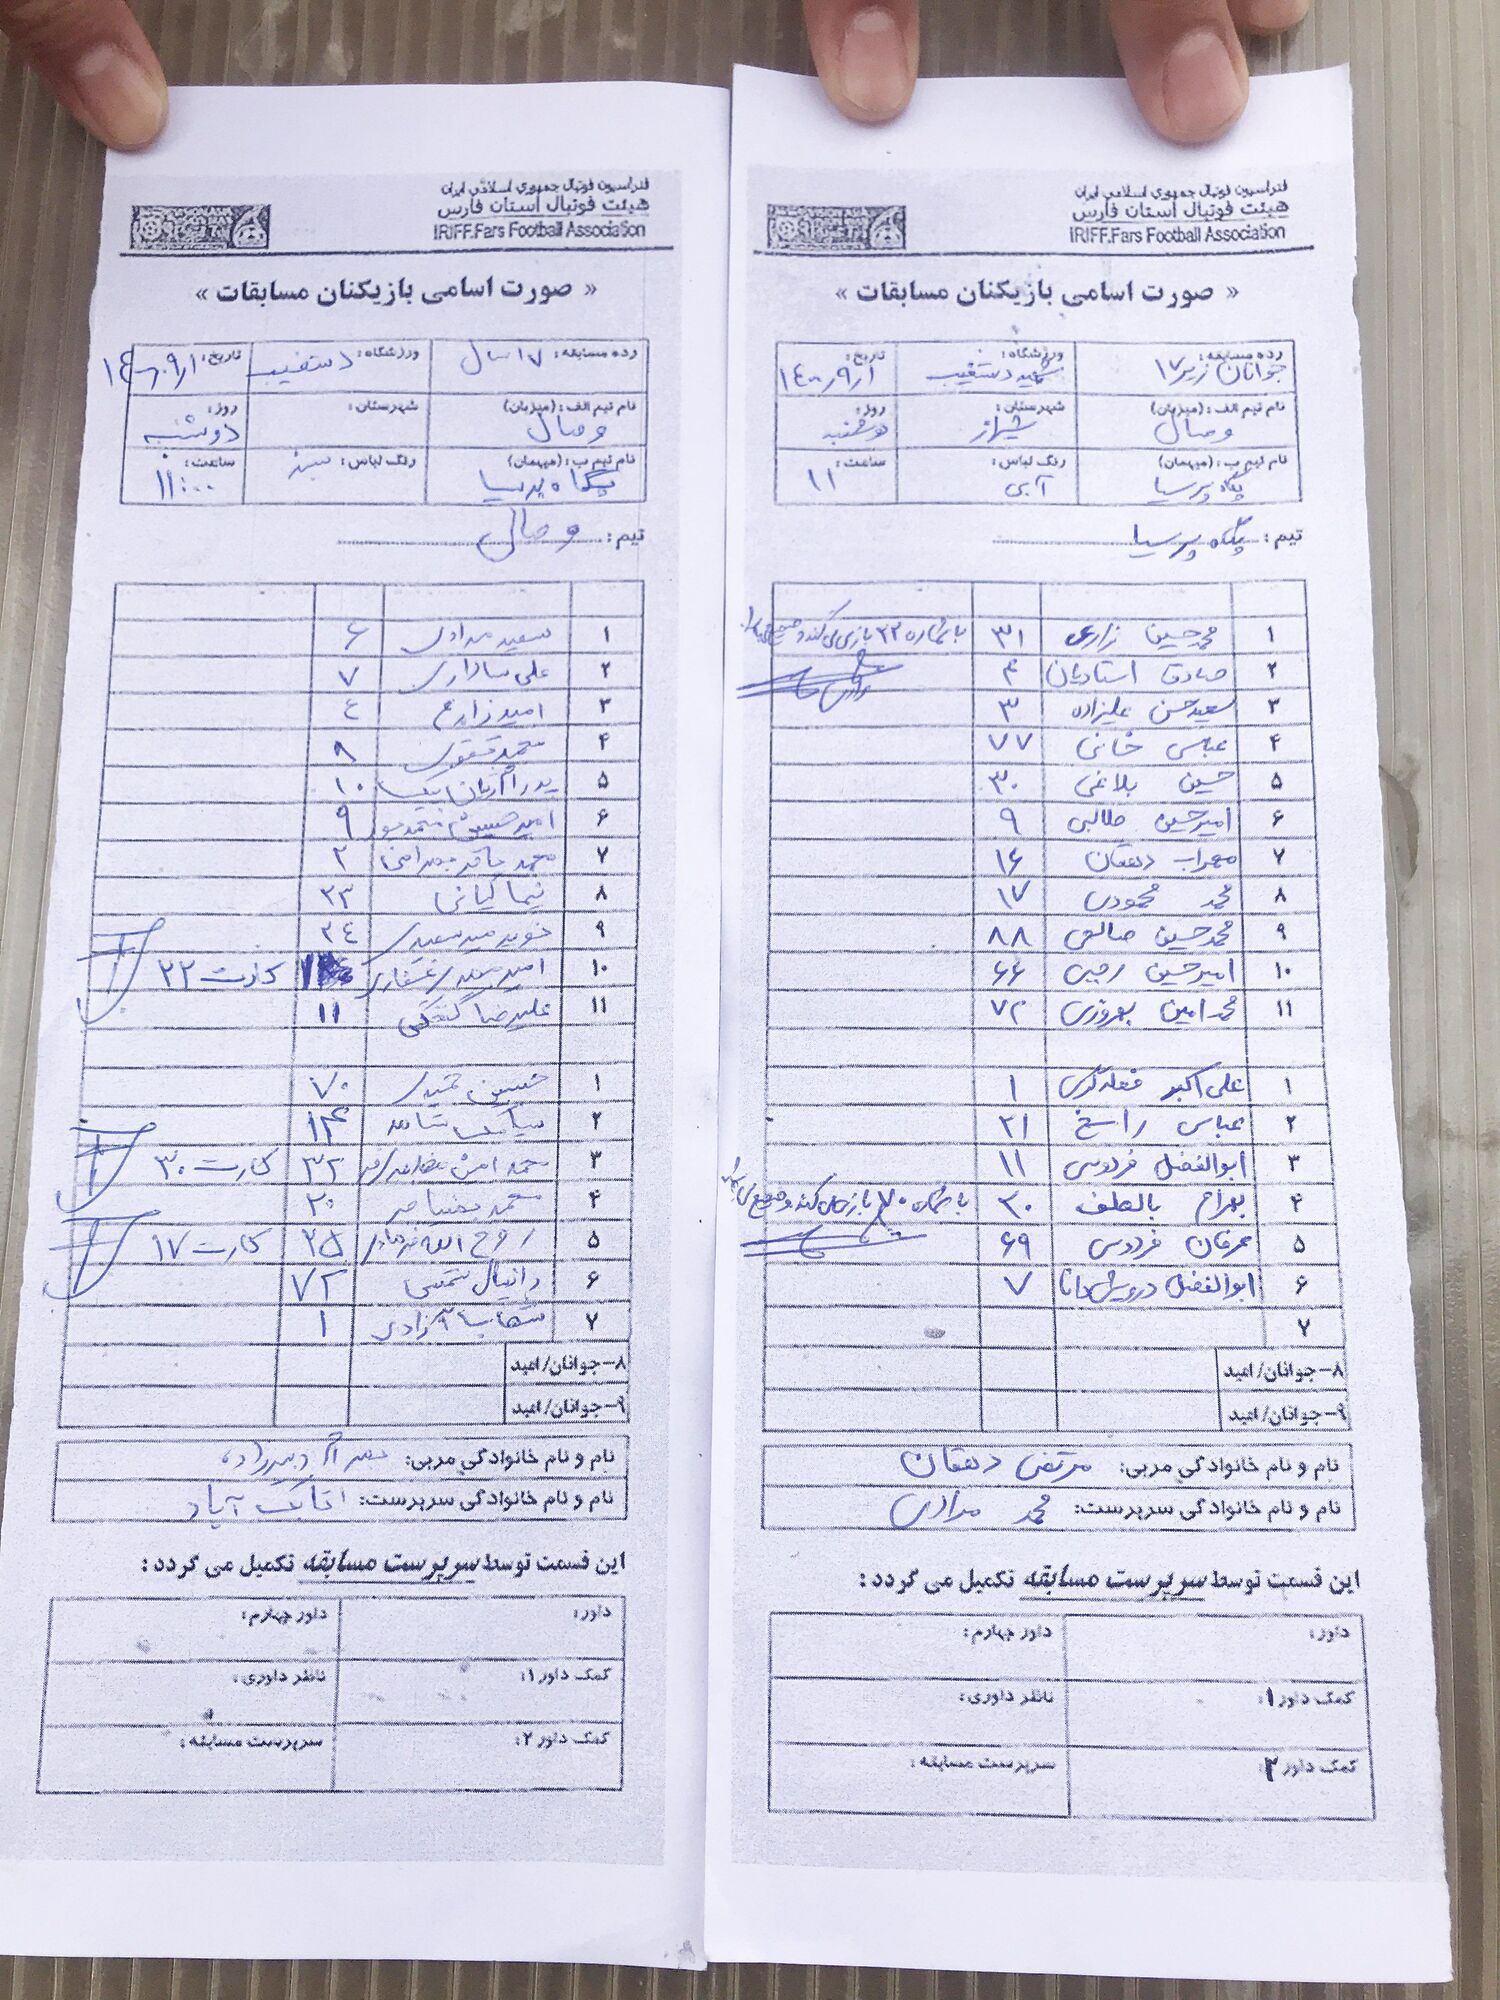 فدراسیون فوتبال جمهوری اسلامی ایران
هیئت فوتبال استان فارس
IRIFF.Fars Football Association
« صورت اسامی بازیکنان مسابقات »
رده مسابقه: جوانان زیر ۱۷ ورزشگاه: شهید دستغیب تاریخ: ۱۴۰۰/۹/۱
نام تیم الف: (میزبان) وصال شهرستان: شیراز روز: دوشنبه
نام تیم ب: (میهمان) پگاه پرسیا رنگ لباس: آبی ساعت: ۱۱
تیم: پگاه پرسیا
۱ محمدحسین زارعی ۳۱ با شماره ۲۲ بازی می کند و صحیح
۲ صادق استادیان ۴
۳ سعیدحسن علیزاده ۳
۴ عباس خانی ۷۷
۵ حسین بلاغی ۳۰
۶ امیرحسین طالبی ۹
۷ مهراب دهقان ۱۶
۸ محمد محمودی ۱۷
۹ محمدحسین صالحی ۸۸
۱۰ امیرحسین رجبی ۶۶
۱۱ محمدامین بهروزی ۷۲
۱ علی اکبر ۱
۲ عباس راسخ ۲۱
۳ ابوالفضل فردوسی ۱۱
۴ بهراج بالطف ۲۰ با شماره ۷۰ بازی می کند و صحیح
۵ عرفان فردوسی ۶۹
۶ ابوالفضل درویش ۷
۷
۸-جوانان/امید
۹-جوانان/امید
نام و نام خانوادگی مربی: مرتضی دهقان
نام و نام خانوادگی سرپرست: محمد مرادی
این قسمت توسط سرپرست مسابقه تکمیل می گردد:
داور: داور چهارم:
کمک داور ۱: ناظر داوری:
کمک داور ۲: سرپرست مسابقه:
فدراسیون فوتبال جمهوری اسلامی ایران
هیئت فوتبال استان فارس
IRIFF.Fars Football Association
« صورت اسامی بازیکنان مسابقات »
رده مسابقه: ۱۷ سال ورزشگاه: دستغیب تاریخ: ۱۴۰۰/۰۹/۱
نام تیم الف: (میزبان) وصال شهرستان: روز: دوشنبه
نام تیم ب: (میهمان) پگاه پرسیا رنگ لباس: سبز ساعت: ۱۱:۰۰
تیم: وصال
۱ سعید مرادی ۶
۲ علی سالاری ۷
۳ امید زارع ۴
۴ محمد ۸
۵ ۱۰
۶ ۹
۷ محمد باقر بهرامی ۲
۸ نیما کیانی ۲۳
۹ نوید ۲۴
۱۰ کارت ۲۲
۱۱ علیرضا ۱۱
۱ حسین ۷۰
۲ سیامک ۱۴
۳ محمد امین ۳۲ کارت ۳۰
۴ محمد ۲۰
۵ روح الله ۲۵ کارت ۱۷
۶ دانیال ۷۲
۷ شهاب آزادی ۱
۸-جوانان/امید
۹-جوانان/امید
نام و نام خانوادگی مربی:
نام و نام خانوادگی سرپرست: اتابک آباد
این قسمت توسط سرپرست مسابقه تکمیل می گردد:
داور: داور چهارم:
کمک داور ۱: ناظر داوری:
کمک داور ۲: سرپرست مسابقه: